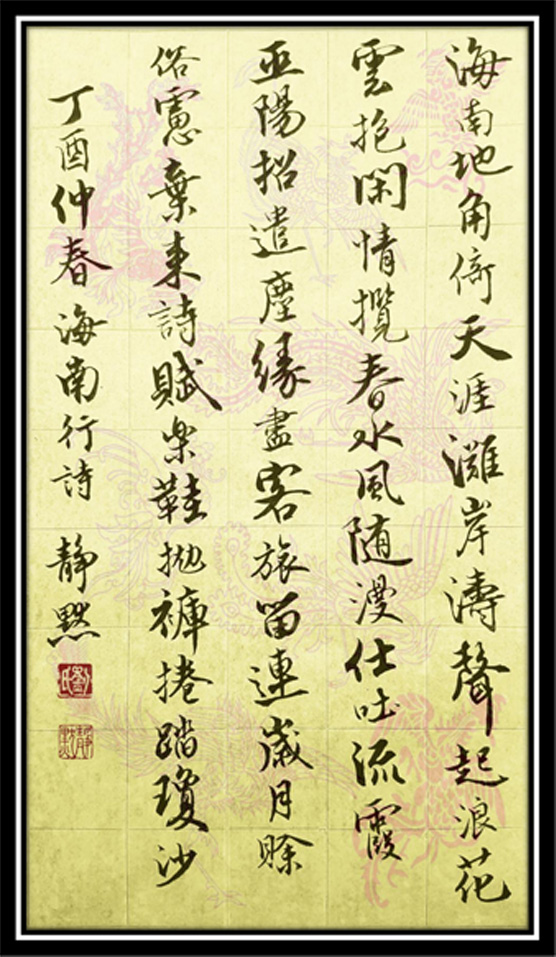 海南地角衔天涯灘岸濤聲起浪花
雲抱閑情攬春水風随漫仕吐流霞
亚陽招遣塵緣盡客旅留連歲月賒
俗慮棄来詩賦楽鞋抛褲捲踏瓊沙
丁酉仲春海南行詩 静默
劉氏
静默